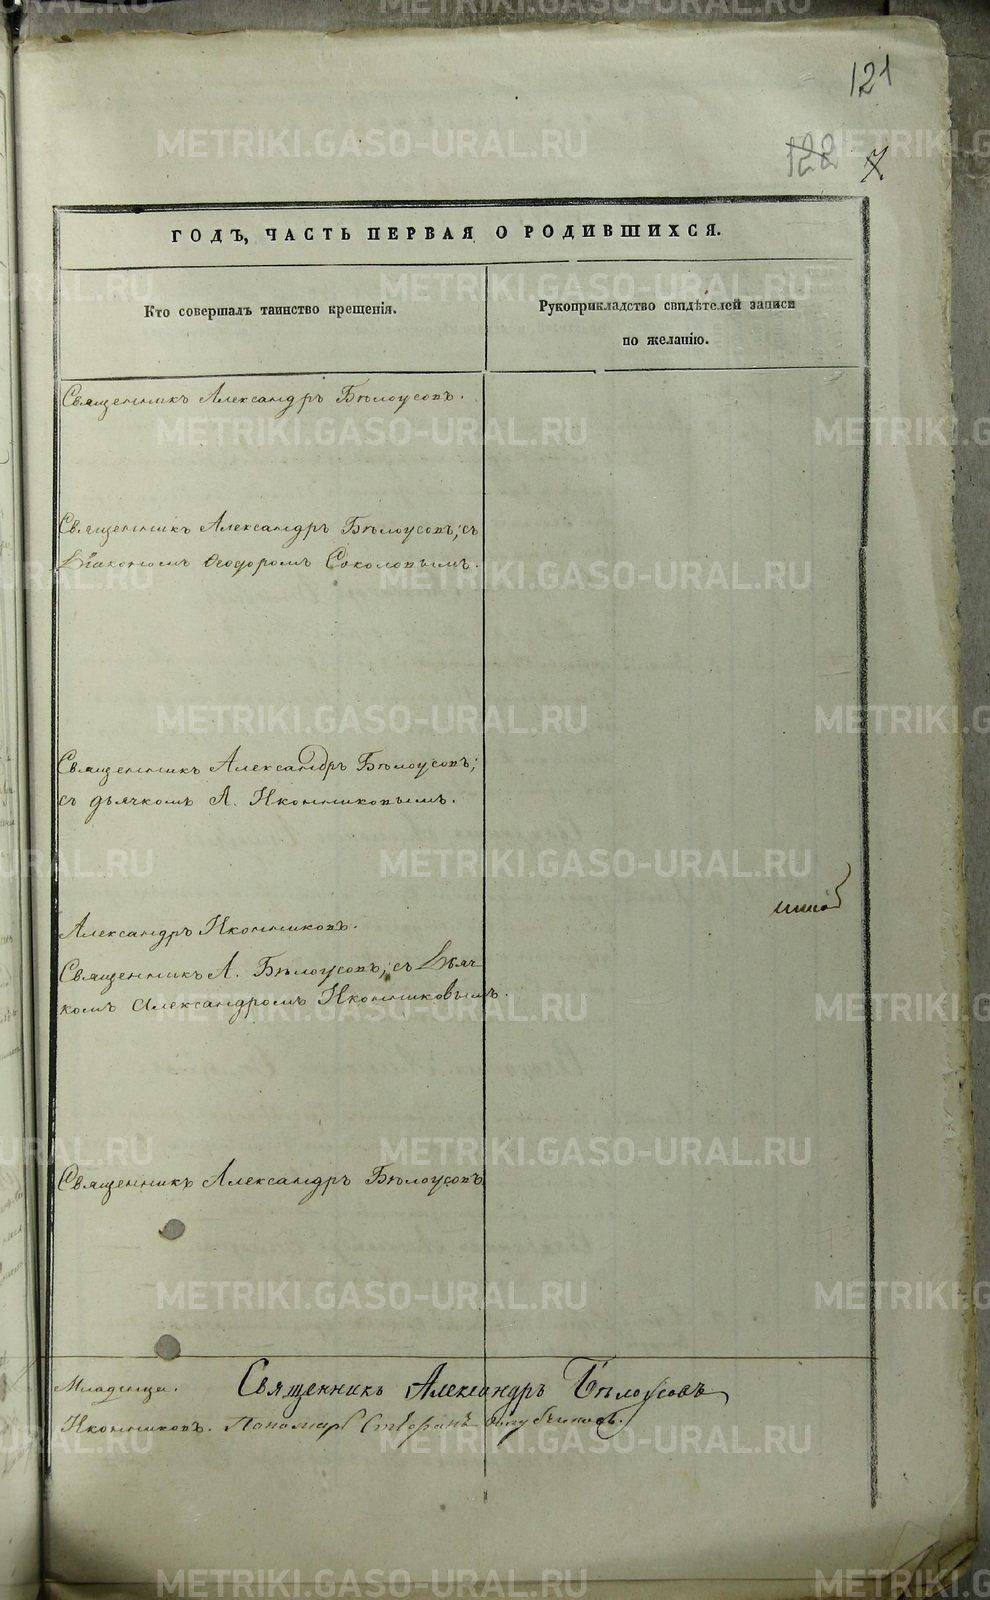 121
122 7
ГОДЪ, ЧАСТЬ ПЕРВАЯ О РОДИВШИХСЯ.
Кто совершалъ таинство крещенія.
Рукоприкладство свидѣтелей записи
по желанію.
Священникъ Александръ Бѣлоусовъ.
Священникъ Александръ Бѣлоусовъ; съ
Діакономъ Ѳеодоромъ Соколовымъ.
Священникъ Александръ Бѣлоусовъ;
съ дьячкомъ А. Иконниковымъ.
Александръ Иконниковъ.
Священникъ А. Бѣлоусовъ; съ Дьяч
комъ Александромъ Иконниковымъ.
Священникъ Александръ Бѣлоусовъ
Младенца. Священникъ Александръ Бѣлоусовъ
Иконниковъ. Пономарь Стефанъ
METRIKI.GASO-URAL.RU